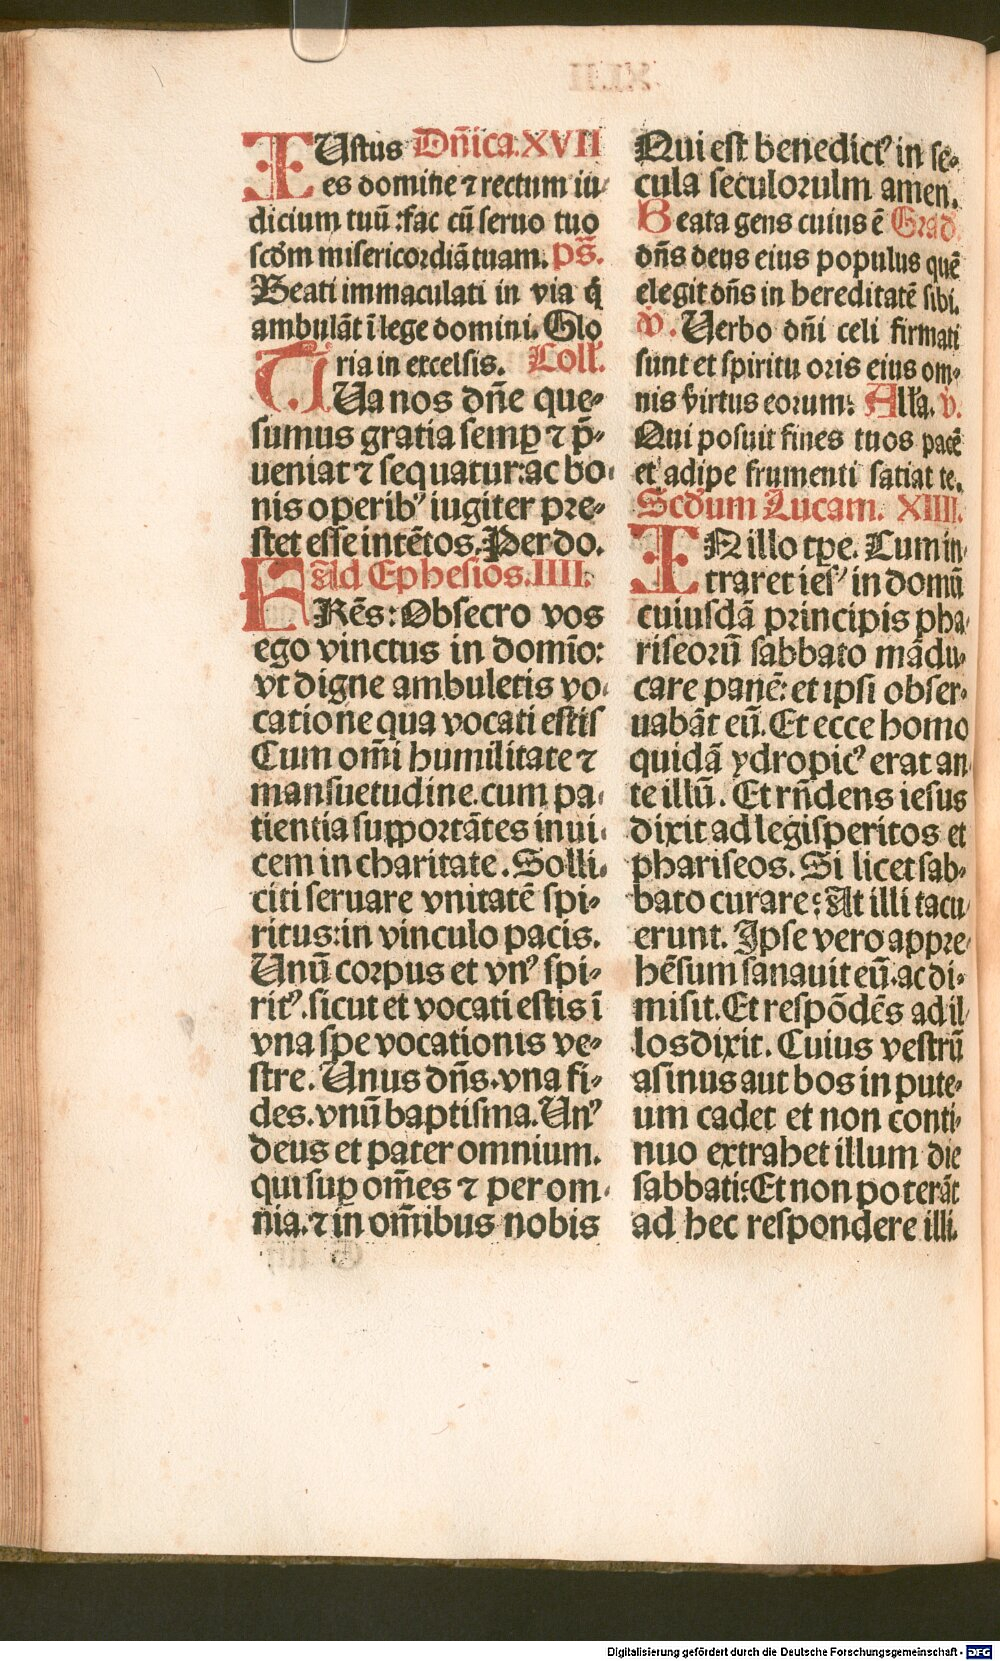 IUstus Dn̄ica.XVII
es domine ⁊ rectum iu-
dicium tuū :fac cū seruo tuo
scd̄m misericordiā tuam. ps̄.
Beati immaculati in via q̄
ambulāt ī lege domini. Glo
ria in excelsis. Coll'.
TUa nos dn̄e que-
sumus gratia semꝑ ⁊ p̄-
ueniat ⁊ sequatur:ac bo-
nis operibꝰ iugiter pre-
stet esse intētos. Per do.
Ad Ephesios.IIII.
FRēs: Obsecro vos
ego vinctus in domīo:
vt digne ambuletis vo-
catione qua vocati estis
Cum om̄i humilitate ⁊
mansuetudine.cum pa-
tientia supportātes inui-
cem in charitate. Solli-
citi seruare vnitatē spi-
ritus:in vinculo pacis.
Unū corpus et vnꝰ spi-
ritꝰ.sicut et vocati estis ī
vna spe vocationis ve-
stre. Unus dn̄s.vna fi-
des.vnū baptisma.Unꝰ
deus et pater omnium.
qui suꝑ om̄es ⁊ per om-
nia.⁊ in om̄ibus nobis
Qui est benedictꝰ in se-
cula seculorulm amen.
Beata gens cuius ē Grad.
dn̄s deus eius populus quē
elegit dn̄s in hereditatē sibi.
v̄. Verbo dn̄i celi firmati
sunt et spiritu oris eius om-
nis v̄irtus eorum: Alla. v̄.
Qui posuit fines tuos pacē
et adipe frumenti satiat te.
Scd̄um Lucam. XIIII.
IN illo tꝑe. Cum in-
traret iesꝰ in domū
cuiusdā principis pha-
riseorū sabbato mādu-
care panē: et ipsi obser-
uabāt eū. Et ecce homo
quidā ydropicꝰ erat an-
te illū. Et rn̄dens iesus
dixit ad legisperitos et
phariseos. Si licet sab-
bato curare: At illi tacu-
erunt. Ipse vero appre-
hēsum sanauit eū.ac di-
misit. Et respōdēs ad il-
los dixit. Cuius vestrū
asinus aut bos in pute-
um cadet et non conti-
nuo extrahet illum die
sabbati: Et non poterāt
ad hec respondere illi.
Digitalisierung gefördert durch die Deutsche Forschungsgemeinschaft - DFG